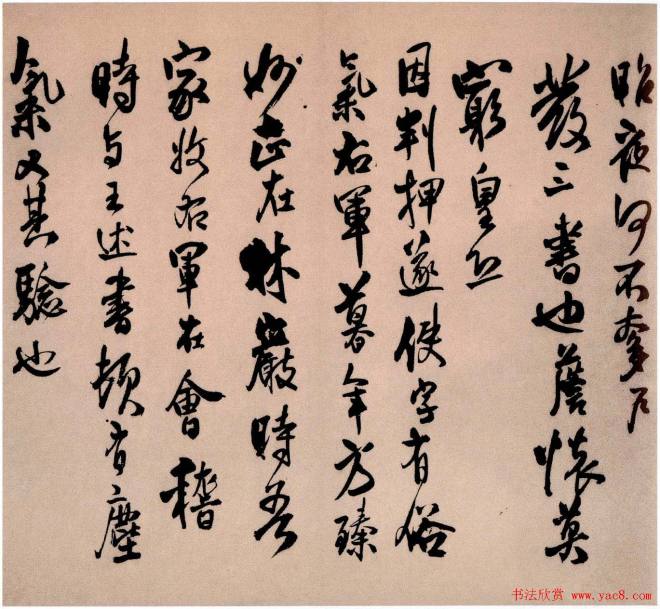 夜何不
發三書也詹懷莫
窮皇恐
因判押遂使字有俗
氣右軍暮年方臻
妙正在林巖時吾
家收右軍在會稽
時与王述書頓有塵
氣又其驗也
书法欣赏 www.yac8.com